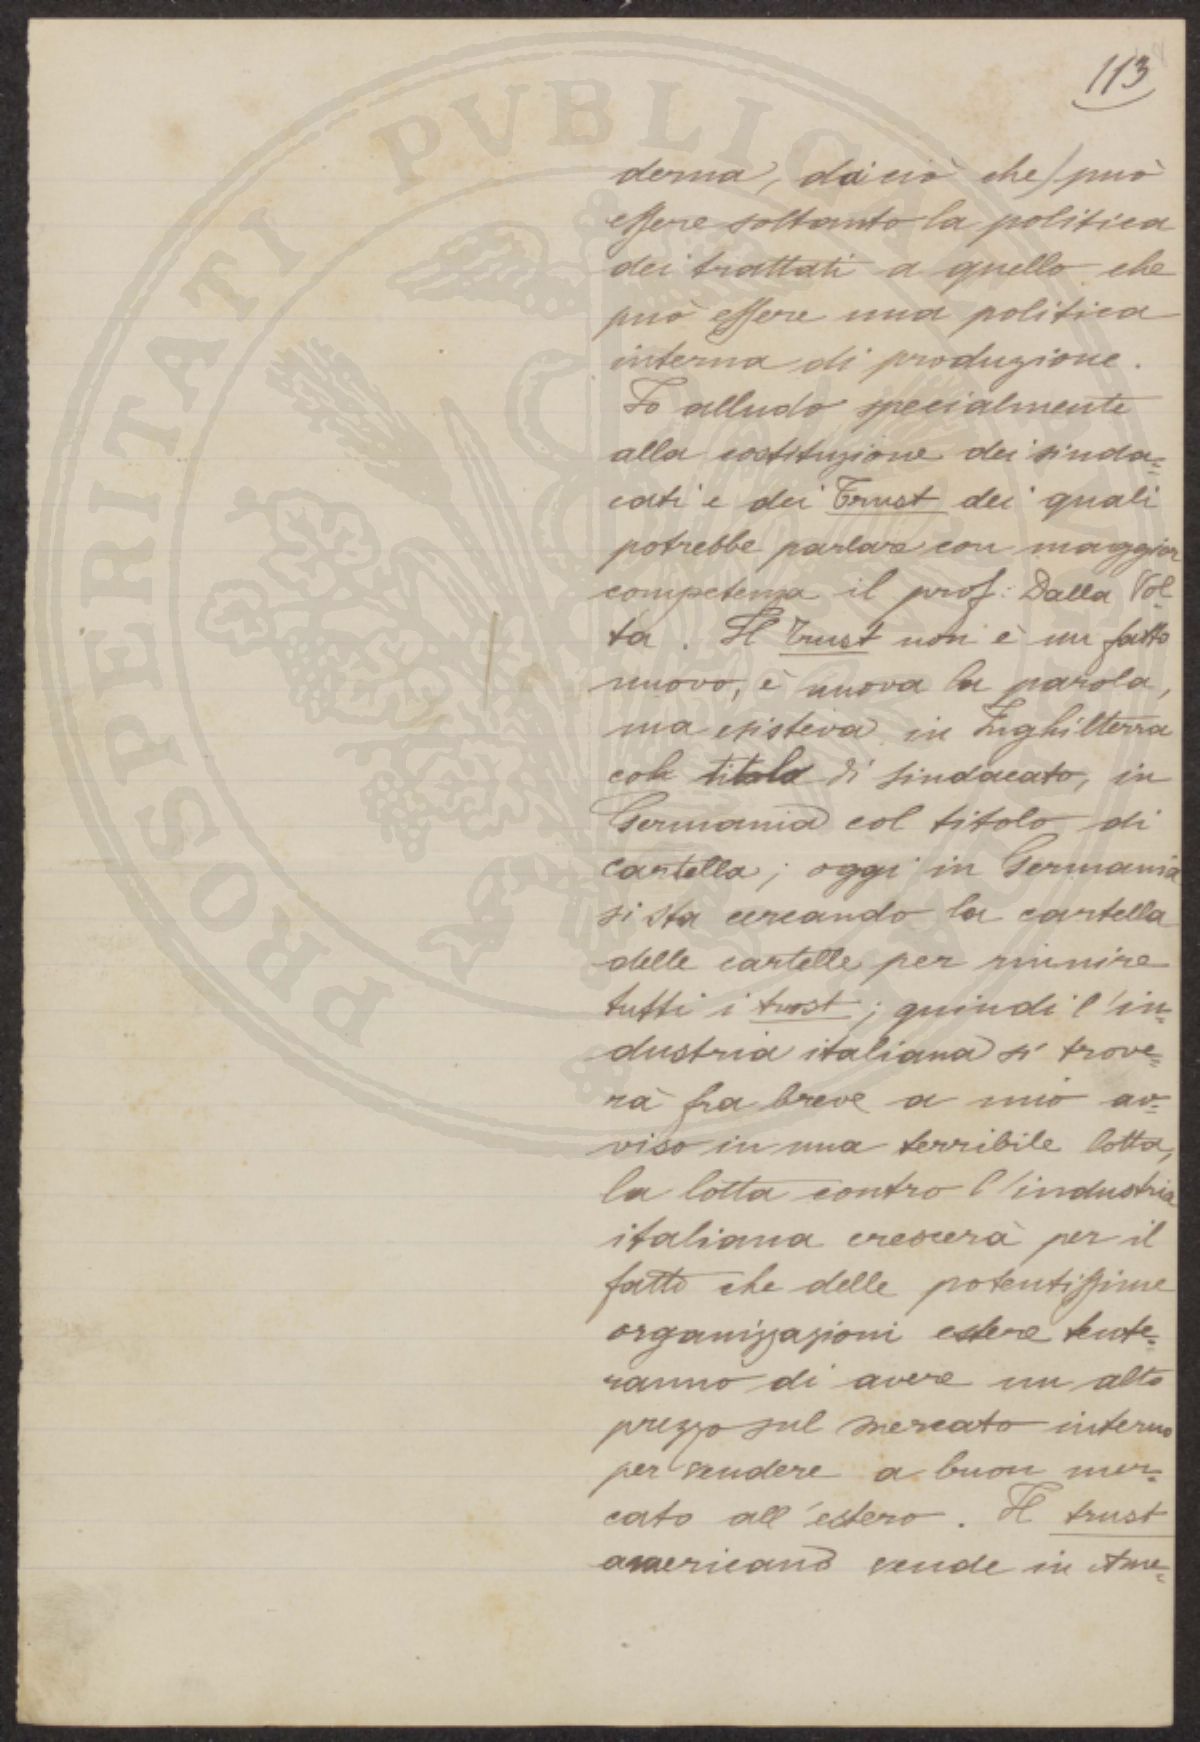 113
derna, da ciò che può
essere soltanto la politica
dei trattati a quello che
può essere una politica
interna di produzione.
Io alludo specialmente
alla costituzione dei sinda=
cati e dei Trust dei quali
potrebbe parlare con maggior
competenza il prof: Dalla Vol
ta. Il Trust non è un fatto
nuovo, è nuova la parola,
ma esisteva in Inghilterra
col titolo di sindacato, in
Germania col titolo di
cartella; oggi in Germania
si sta cercando la cartella
delle cartelle per riunire
tutti i trust; quindi l'in=
dustria italiana si trove=
rà fra breve a mio av=
viso in una terribile lotta,
la lotta contro l'industria
italiana crescerà per il
fatto che delle potentissime
organizzazioni estere tente=
ranno di avere un alto
prezzo sul mercato interno
per vendere a buon mer=
cato all'estero. Il trust
americano vende in Ame=
PROSPERITATI PVBLICAE